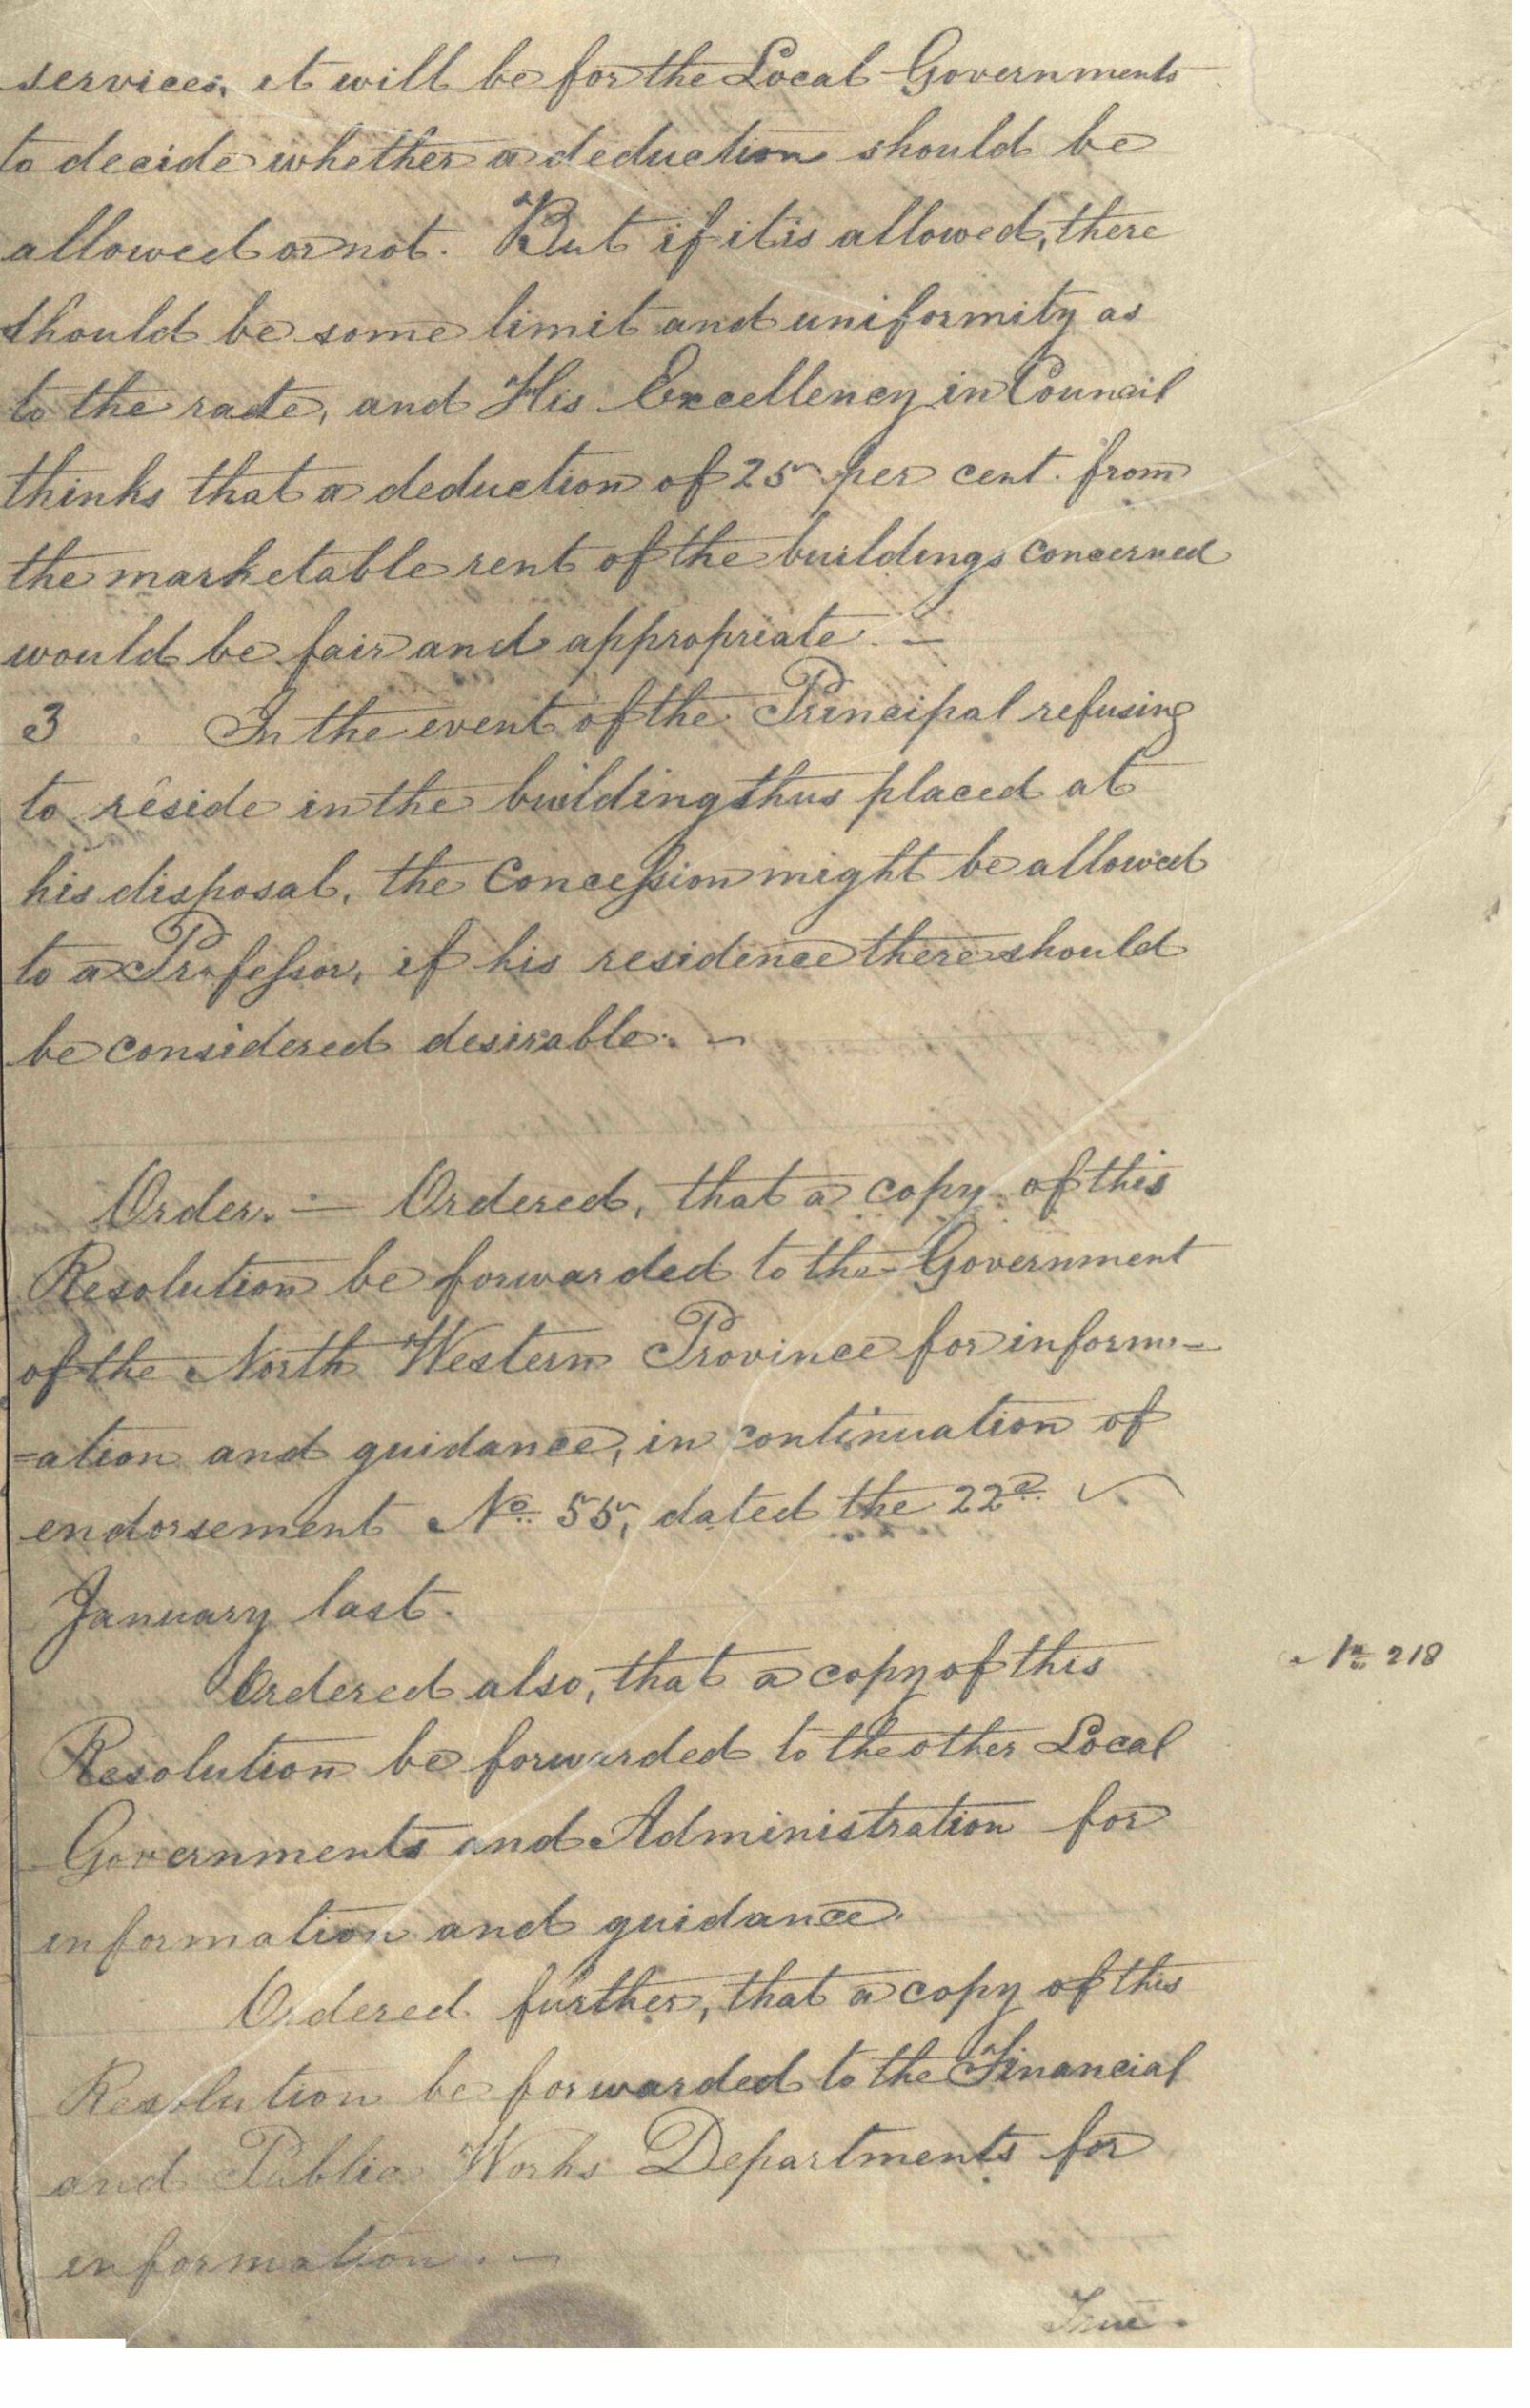 services, it will be for the Local Governments
to decide whether a deduction should be
allowed or not. But if it is allowed, there
should be some limit and uniformity as
to the rate, and His Excellency in Council
thinks that a deduction of 25 per cent. from
the marketable rent of the buildings concerned
would be fair and appropriate. —
3 In the event of the Principal refusing
to reside in the building thus placed at
his disposal, the Concession might be allowed
to a Professor, if his residence there should
be considered desirable. —
Order. — Ordered, that a copy of this
Resolution be forwarded to the Government
of the North Western Province for inform-
=ation and guidance, in continuation of
endorsement No. 55, dated the 22d.
January last.
Ordered also, that a copy of this
No. 218
Resolution be forwarded to the other Local
Governments and Administration for
information and guidance.
Ordered further, that a copy of this
Resolution be forwarded to the Financial
and Public Works Departments for
information. —
True.